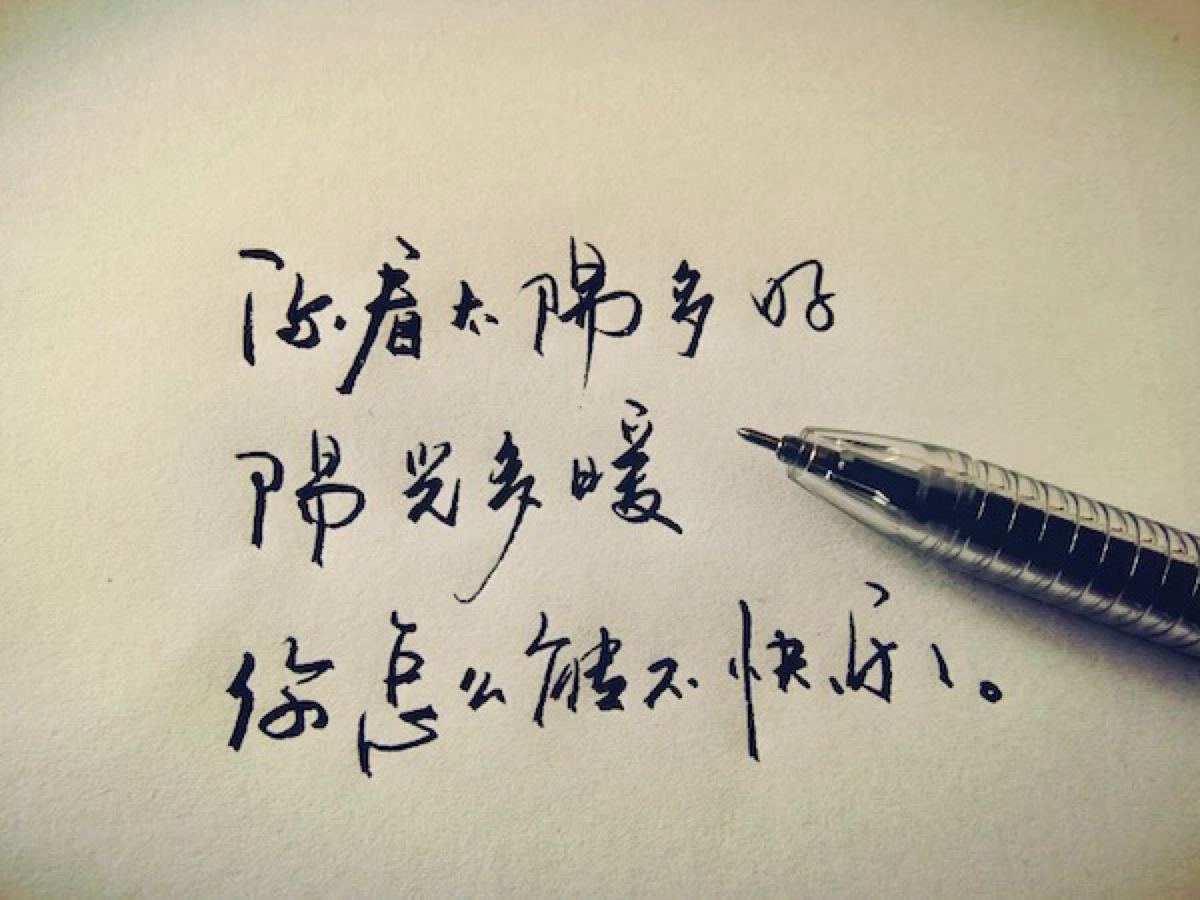 你看太陽多好
陽光多暖
你怎么能不快乐。